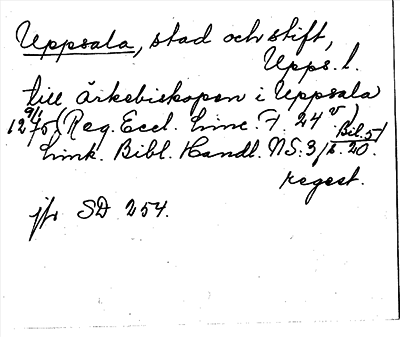 Uppsala, stad och stift,
Upps. l.
till ärkebiskopen i Uppsala
9/1
1275 (Reg. Eccl. Linc. F. 24 v)
Link. Bibl. Handl. N.S. 3, Bil. 5, s. 20.
regest.
jfr SD 254.